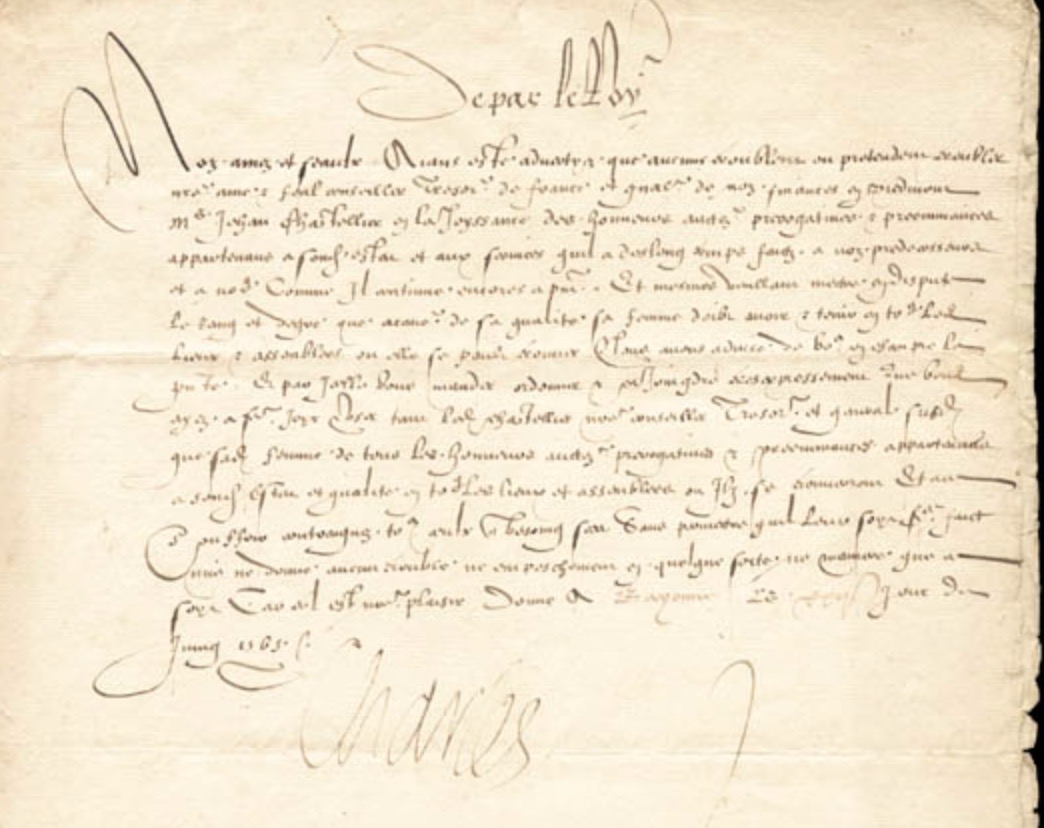 De par le Roy
Noz amez et feaulx Aians esté advertyz que aucuns troublent ou pretendent troubler
nre amé & feal conseiller Tresor de france et gnal de noz finances en Piedmont
Me Jehan Chastellier en la Joyssance des honneurs auctz prerogatives & preeminances
appartenans a sond estat et aux services quil a de long temps faictz a noz predecesseurs
et a nous Comme Il continue encores a pnt Et mesmes veullant mectre en dispute
Le Rang et degré que a cause de sa qualité sa femme doibt avoir & tenir en tous Les
Lieux & assemblees ou elle se peult trouver Nous avons advisé de vous en escripre la
pnte Et par Icelle vous mander ordonner & enjoingdre tresexpressement que vous
ayez a fe Joyr tant led Chastellier nre conseiller Tresor et general susd
que sad femme de tous Les honneurs auctz prerogatives & preeminances appartenans
a sond Estat et qualité en tous Les lieux et assemblees ou Ilz se trouveront Et a
ce souffrir contraignez tous ceulx quil besoing sera Sans permectre quil Leur soyt fe faict
mis ne donné aucun trouble ne empeschement en quelque sorte ne maniere que ce
soyt Car tel est nre plaisir Donné A Bayonne Le jour de
Juing 1565
Charles